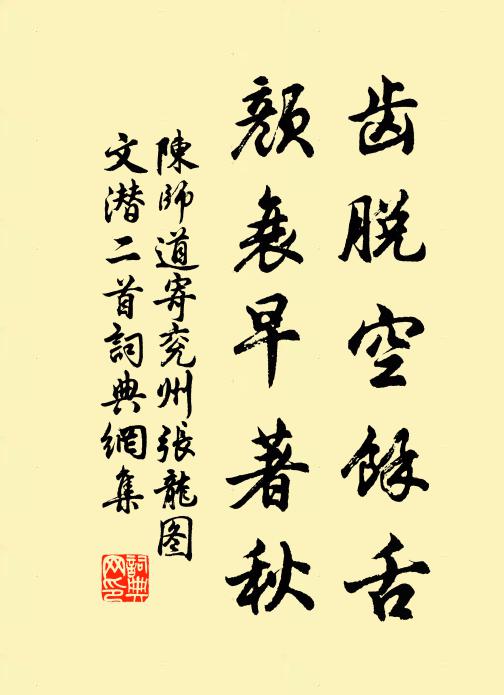 齿脱空餘舌
颜衰早著秋
陳師道寄兖州張龍图
文潜二首詞典網集
詞典
网印